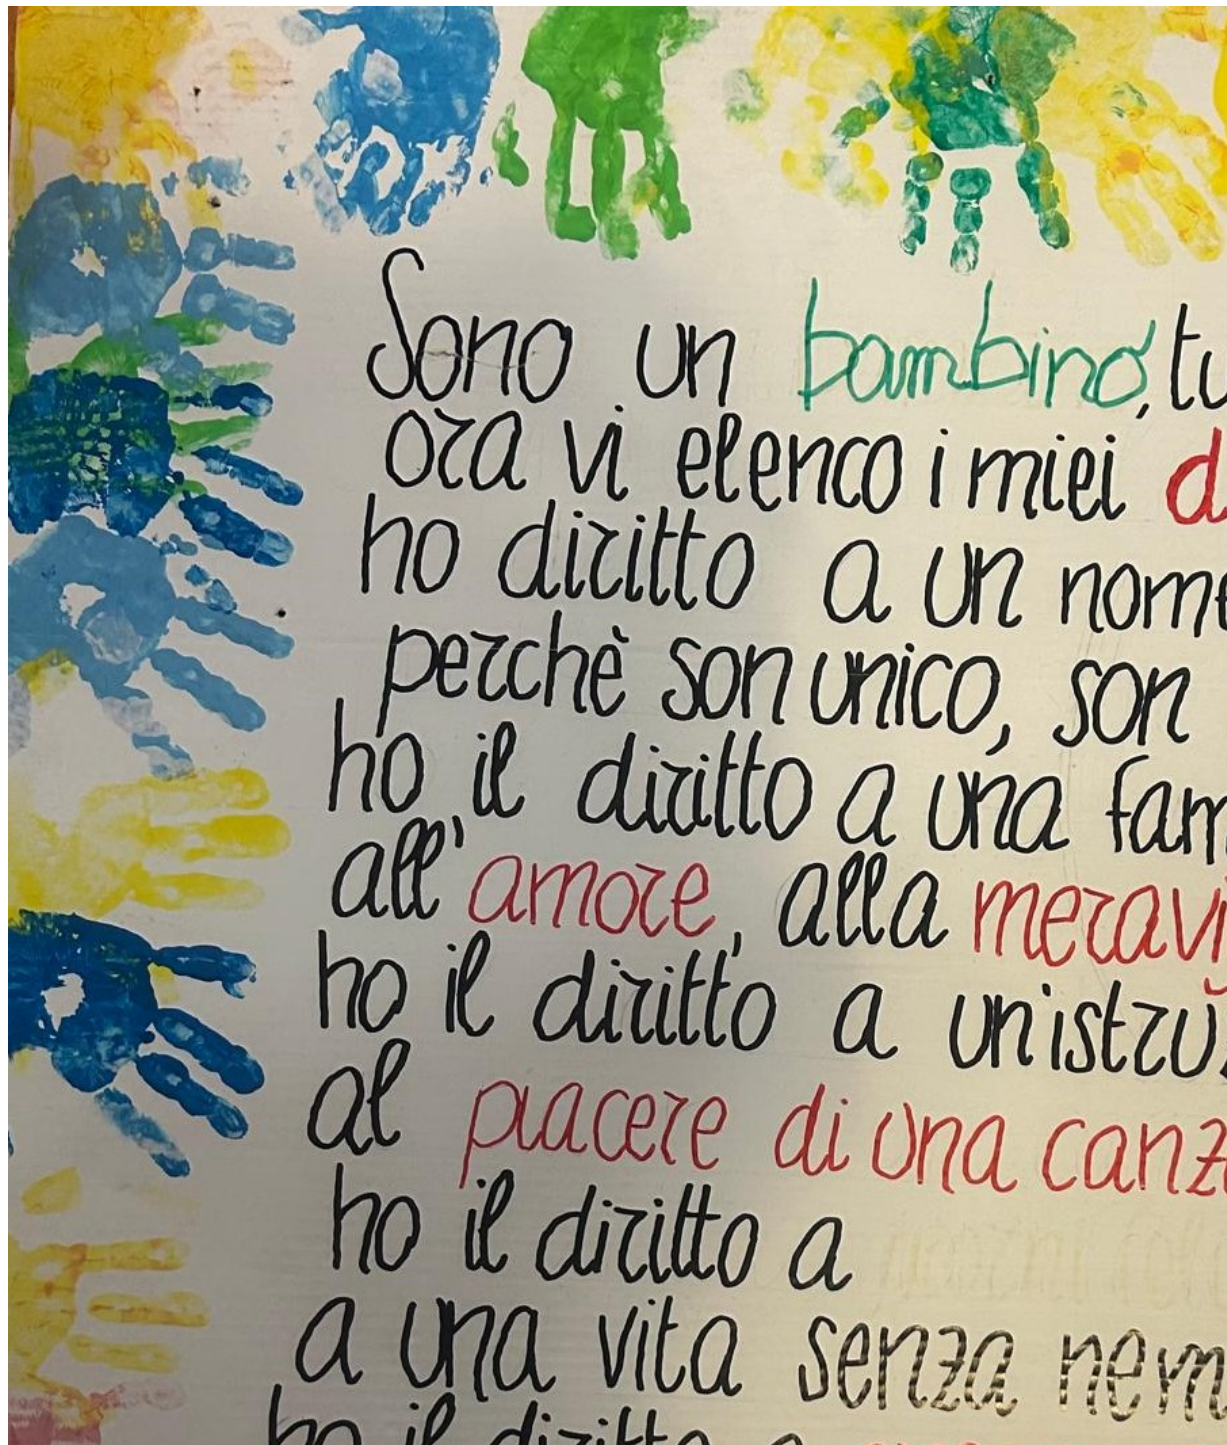 Sono un bambino, tu
ora vi elenco i miei d
ho diritto a un nome
perchè son unico, son
ho il diritto a una fam
all'amore, alla meravi
ho il diritto a un'istru
al piacere di una canz
ho il diritto a
a una vita senza nem
ho il diritto a